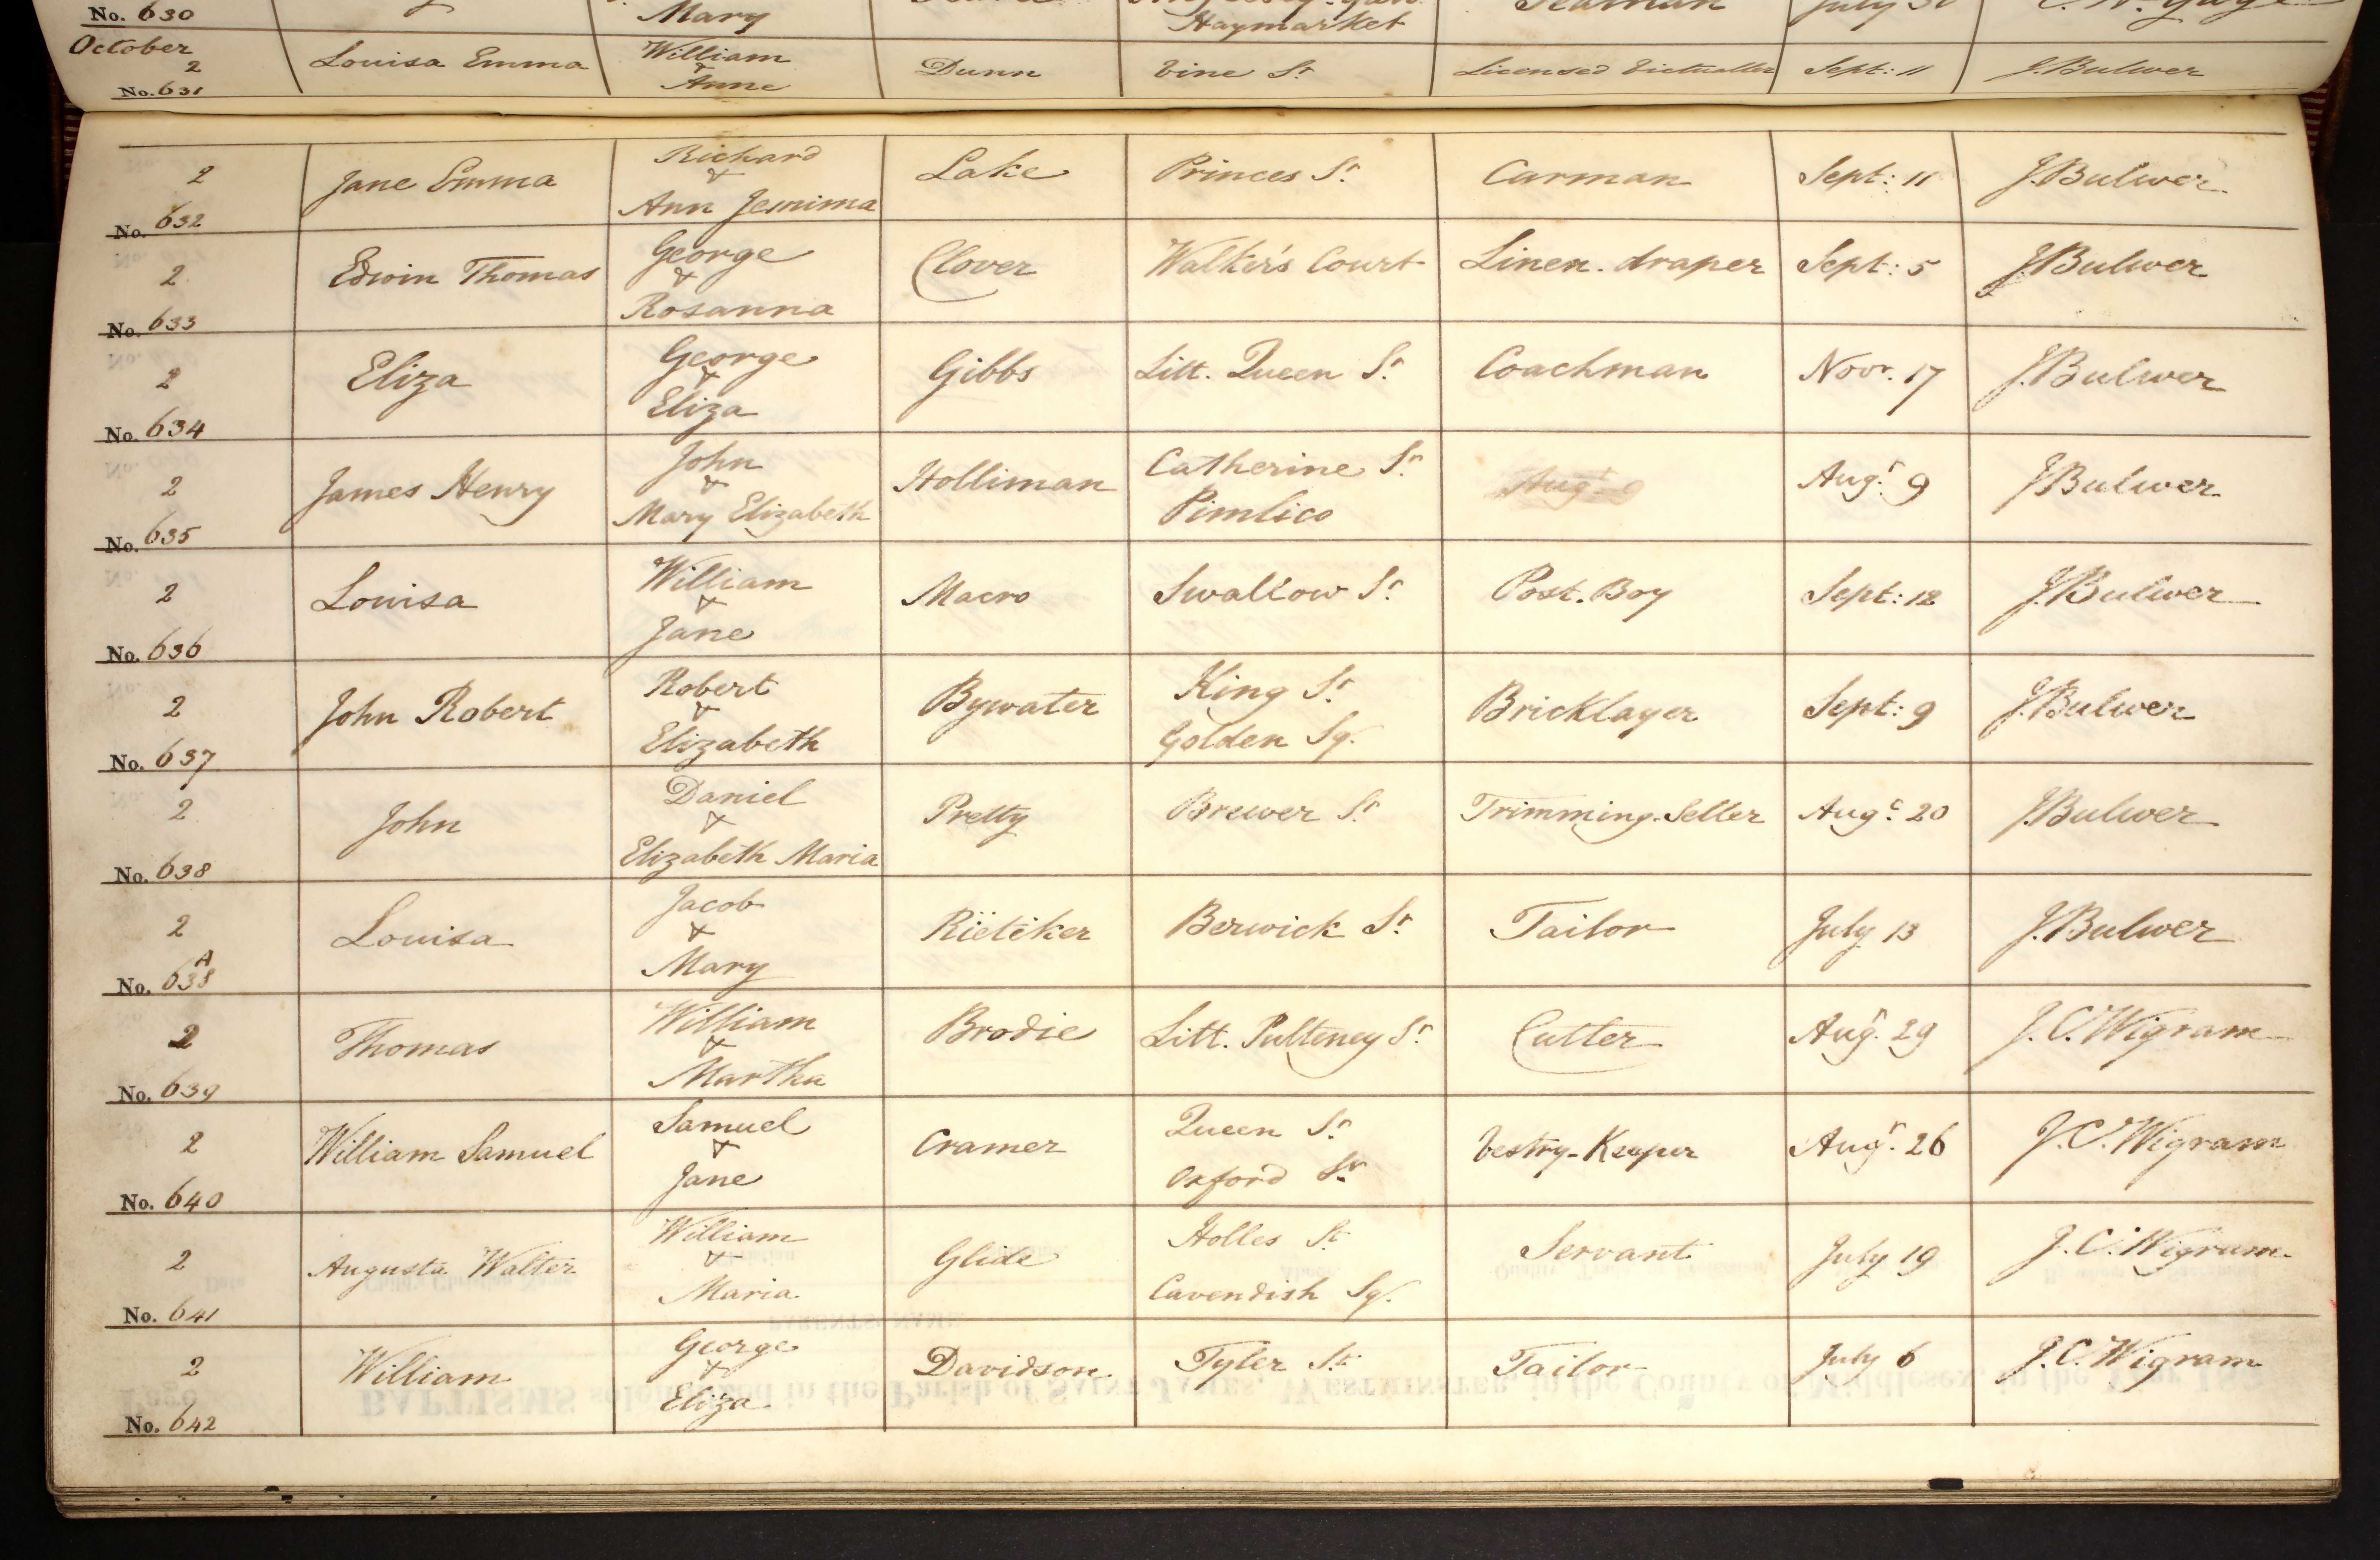 No. 630 Mary Haymarket Seaman July
October 2 Louisa Emma William & Anne Dunn Vine St Licensed Victualler Sept: 11 J. Bulwer
No. 631
2 Jane Emma Richard & Ann Jemima Lake Princes St. Carman Sept: 11 J. Bulwer
No. 632
2 Edwin Thomas George & Rosanna Clover Walker's Court Linen-draper Sept: 5 J. Bulwer
No. 633
2 Eliza George & Eliza Gibbs Litt. Queen St. Coachman Novr. 17 J. Bulwer
No. 634
2 James Henry John & Mary Elizabeth Holliman Catherine St. Pimlico Augt. 9 Augt. 9 J. Bulwer
No. 635
2 Louisa William & Jane Macro Swallow St. Post-Boy Sept: 12 J. Bulwer
No. 636
2 John Robert Robert & Elizabeth Bywater King St. Golden Sq. Bricklayer Sept: 9 J. Bulwer
No. 637
2 John Daniel & Elizabeth Maria Pretty Brewer St. Trimming-Seller Augt. 20 J. Bulwer
No. 638
2 Louisa Jacob & Mary Rietiker Berwick St. Tailor July 13 J. Bulwer
No. 638A
2 Thomas William & Martha Brodie Litt. Pulteney St. Cutter Augt. 29 J. C. Wigram
No. 639
2 William Samuel Samuel & Jane Cramer Queen St. Oxford St. Vestry-Keeper Augt. 26 J. C. Wigram
No. 640
2 Augusta Walter William & Maria Glide Holles St. Cavendish Sq. Servant July 19 J. C. Wigram
No. 641
2 William George & Eliza Davidson Tyler St. Tailor July 6 J. C. Wigram
No. 642